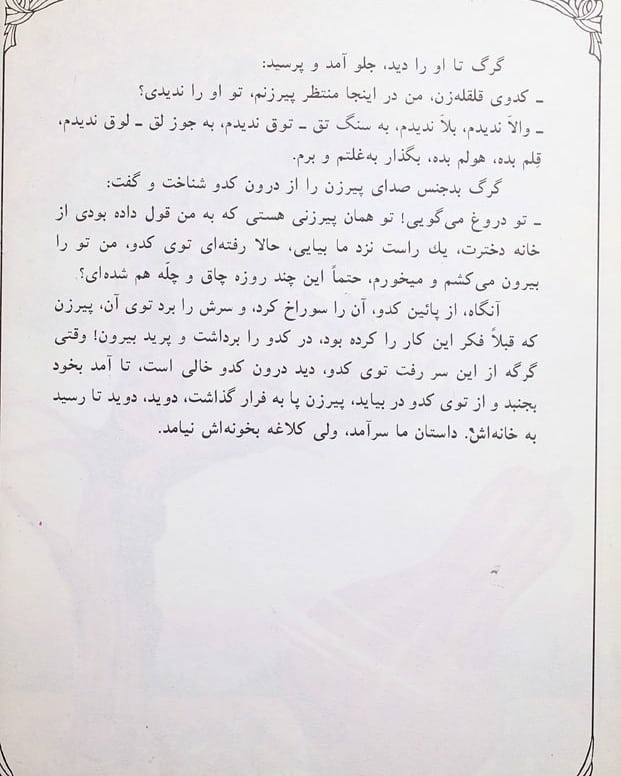 گرگ تا او را دید، جلو آمد و پرسید:
ـ کدوی قلقله‌زن، من در اینجا منتظر پیرزنم، تو او را ندیدی؟
ـ والاَ ندیدم، بلاَ ندیدم، به سنگ تق ـ توق ندیدم، به جوز لق ـ لوق ندیدم،
قِلم بده، هولم بده، بگذار به‌غلتم و برم.
گرگ بدجنس صدای پیرزن را از درون کدو شناخت و گفت:
ـ تو دروغ می‌گویی! تو همان پیرزنی هستی که به من قول داده بودی از
خانه دخترت، یك راست نزد ما بیایی، حالا رفته‌ای توی کدو، من تو را
بیرون می‌کشم و میخورم، حتماً این چند روزه چاق و چلّه هم شده‌ای؟
آنگاه، از پائین کدو، آن را سوراخ کرد، و سرش را برد توی آن، پیرزن
که قبلاً فکر این کار را کرده بود، در کدو را برداشت و پرید بیرون! وقتی
گرگه از این سر رفت توی کدو، دید درون کدو خالی است، تا آمد بخود
بجنبد و از توی کدو در بیاید، پیرزن پا به فرار گذاشت، دوید، دوید تا رسید
به خانه‌اش. داستان ما سرآمد، ولی کلاغه بخونه‌اش نیامد.